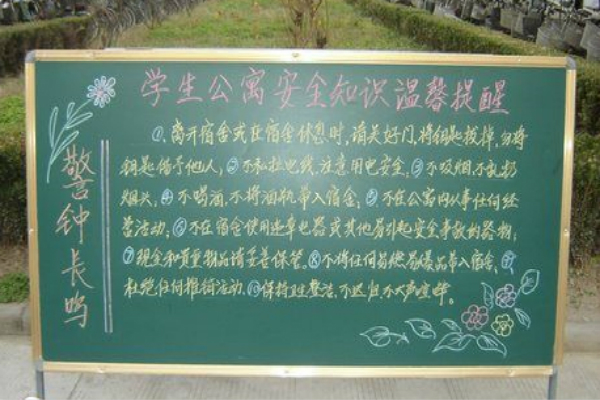 学生公寓安全知识温馨提醒
警钟长鸣
①离开宿舍或在宿舍休息时,请关好门,将钥匙拔掉,勿将
钥匙借予他人;②不私拉电线,注意用电安全。③不吸烟,不乱扔
烟头。④不喝酒,不将酒瓶带入宿舍;⑤不在公寓内从事任何经
营活动;⑥不在宿舍使用违章电器或其他易引起安全事故的器物;
⑦现金和贵重物品请妥善保管。⑧不将任何易燃易爆品带入宿舍;⑨
杜绝任何推销活动。⑩保持卫生整洁,不迟归,不大声喧哗。